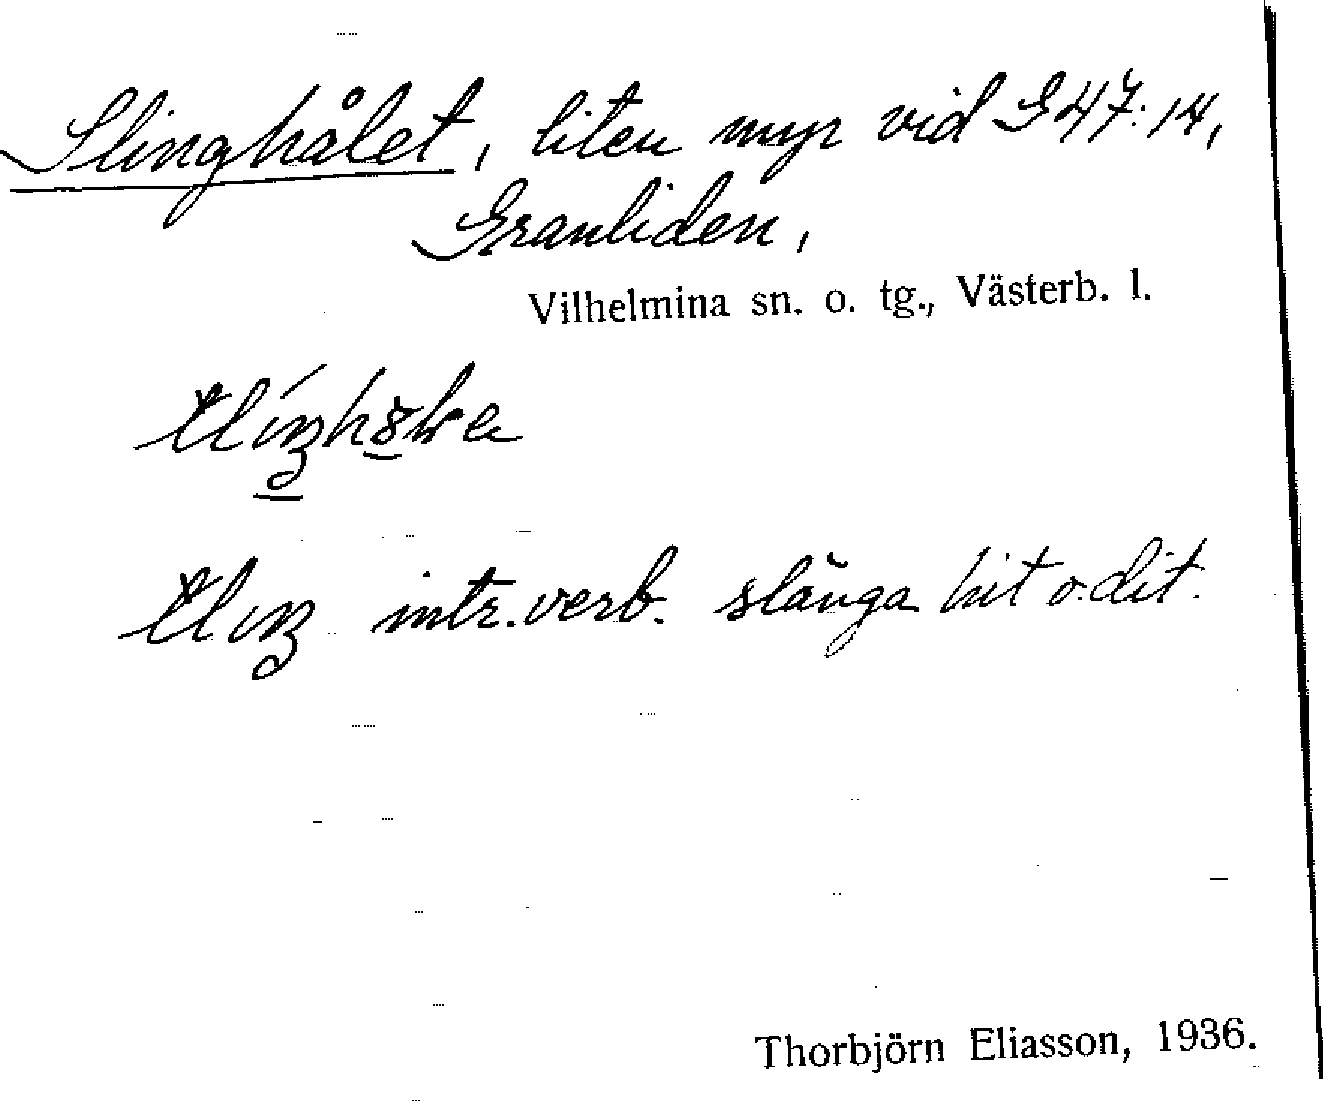 Slinghålet, liten myr vid G47:14,
Granliden,
Vilhelmina sn. o. tg., Västerb. l.
intr. verb. slänga hit o. dit.
Thorbjörn Eliasson, 1936.